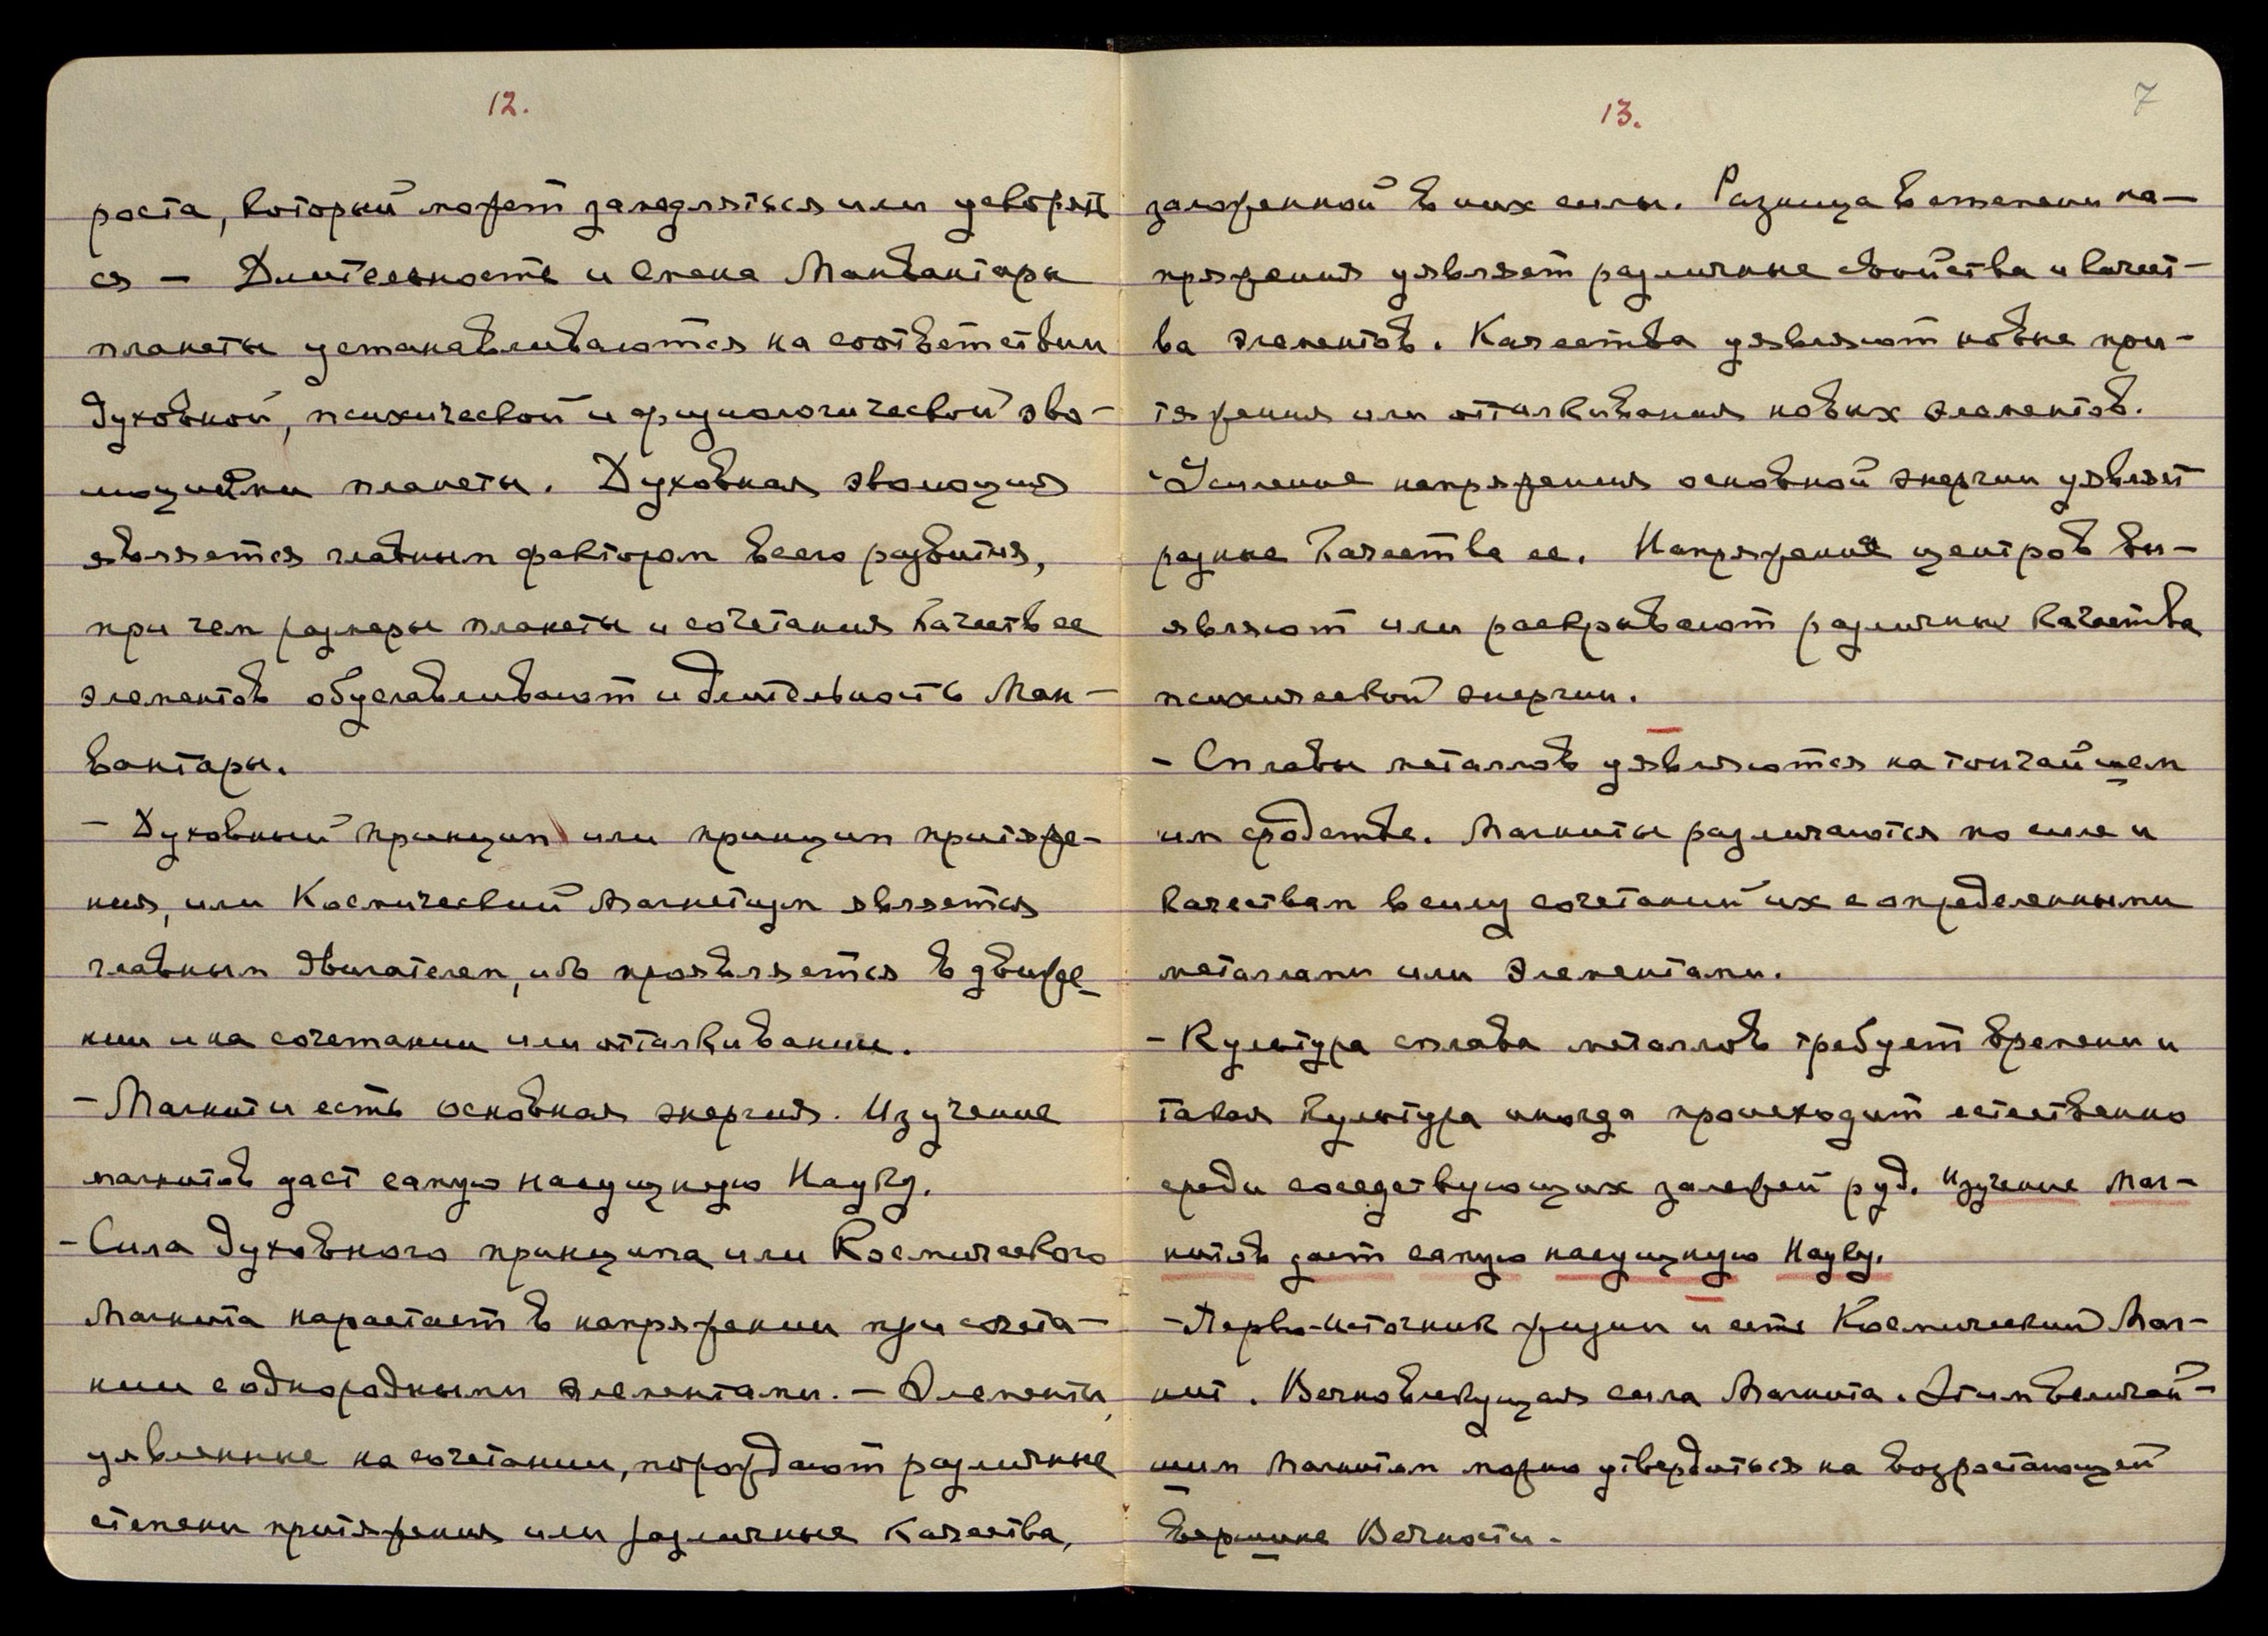 12.
роста, который может замедляться или ускорять
ся — Длительность и Смена Манвантары
планеты устанавливаются на соответствии
духовной, психической и физиологической эво-
люции планеты. Духовная эволюция
является главным фактором всего развития,
при чем размеры планеты и сочетания качеств ее
элементов обуславливают и длительность Ман-
вантары.
— Духовный принцип или принцип притяже-
ния, или Космический Магнетизм является
главным двигателем, ибо проявляется в движе-
нии и на сочетании или отталкивании.
— Магнит и есть основная энергия. Изучение
магнитов даст самую насущную Науку.
— Сила духовного принципа или Космического
Магнита нарастает в напряжении при сочета-
нии с однородными элементами. — Элементы,
уявленные на сочетании, порождают различные
степени притяжения или различные качества,
13.
7
заложенной в них силы. Разница в степени на-
пряжения уявляет различные свойства и качест-
ва элементов. Качества уявляют новые при-
тяжения или отталкивания новых элементов.
Усиление напряжения основной энергии уявляет
разные качества ее. Напряжение центров вы-
являют или раскрывают различные качества
психической энергии.
— Сплавы металлов уявляются на тончайшем
им сродстве. Магниты различаются по силе и
качествам в силу сочетаний их с определенными
металлами или элементами.
— Культура сплава металлов требует времени и
такая культура иногда происходит естественно
среди соседствующих залежей руд. Изучение Маг-
нитов даст самую насущную Науку.
— Перво-источник жизни и есть Космический Маг-
нит. Вечно влекущая сила Магнита. Этим величай-
шим Магнитом можно утвердиться на возрастающей
вершине Вечности.